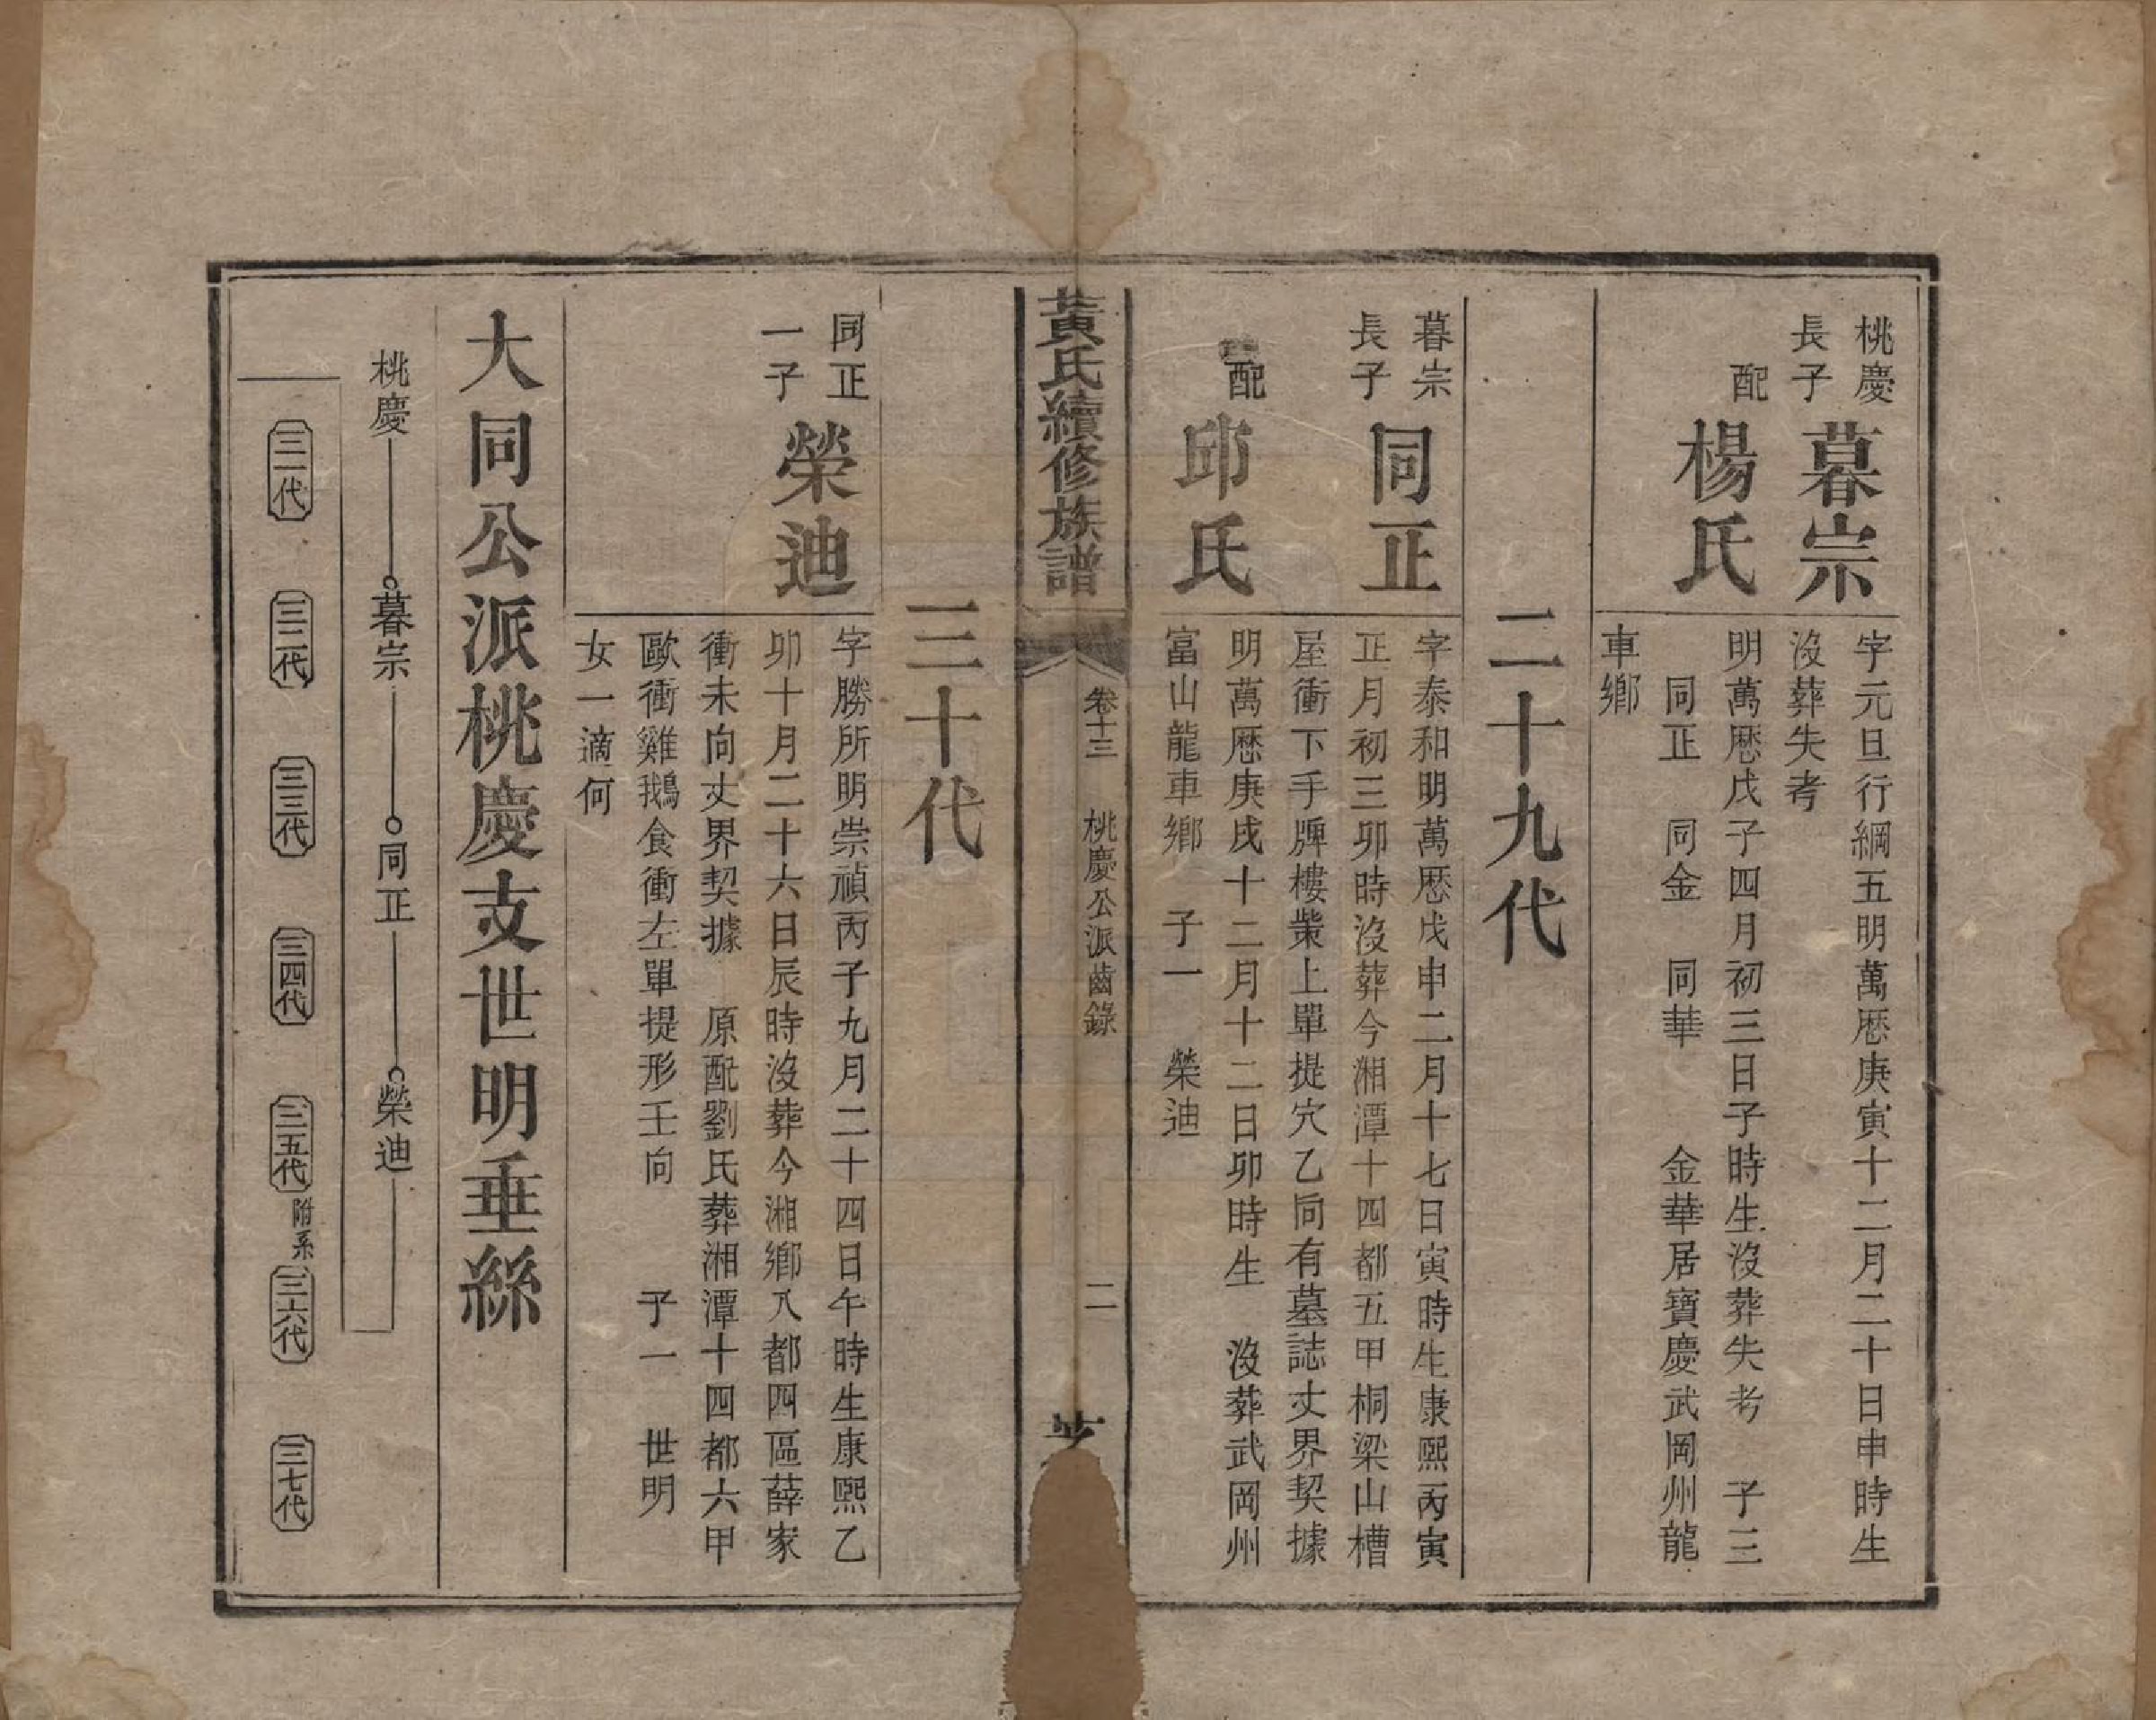 桃慶
長子
暮宗
字元旦行綱五明萬歷庚寅十二月二十日申時生
沒葬失考
配
楊氏
明萬歷戊子四月初三日子時生沒葬失考　子三
同正　同金　同華　　金華居寶慶武岡州龍
車鄉
二十九代
暮宗
長子
同正
字泰和明萬歷戊申二月十七日寅時生康熙丙寅
正月初三卯時沒葬今湘潭十四都五甲桐梁山槽
屋衝下手牌樓業上單提穴乙向有墓誌丈界契據
配
邱氏
明萬歷庚戌十二月十二日卯時生　沒葬武岡州
富山龍車鄉　子一　榮迪
黃氏續修族譜
卷十三
桃慶公派齒錄
二
三十代
同正
一子
榮迪
字勝所明崇禎丙子九月二十四日午時生康熙乙
卯十月二十六日辰時沒葬今湘鄉八都四區薛家
衝未向丈界契據　原配劉氏葬湘潭十四都六甲
歐衝雞鵝食衝左單提形壬向　　子一　世明
女一適何
大同公派桃慶支世明垂絲
桃慶　暮宗　同正　榮迪
三一代　三二代　三三代　三四代　三五代　附系　三六代　三七代